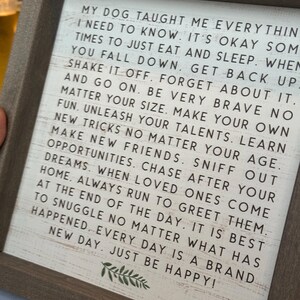 MY DOG TAUGHT ME EVERYTHIN
I NEED TO KNOW. IT'S OKAY SOM
TIMES TO JUST EAT AND SLEEP. WHEN
YOU FALL DOWN. GET BACK UP
SHAKE IT OFF. FORGET ABOUT IT.
AND GO ON. BE VERY BRAVE NO
MATTER YOUR SIZE. MAKE YOUR OWN
FUN. UNLEASH YOUR TALENTS. LEARN
NEW TRICKS NO MATTER YOUR AGE.
MAKE NEW FRIENDS. SNIFF OUT
OPPORTUNITIES. CHASE AFTER YOUR
DREAMS. WHEN LOVED ONES COME
HOME. ALWAYS RUN TO GREET THEM.
AT THE END OF THE DAY. IT IS BEST
TO SNUGGLE NO MATTER WHAT HAS
HAPPENED. EVERY DAY IS A BRAND
NEW DAY. JUST BE HAPPY!